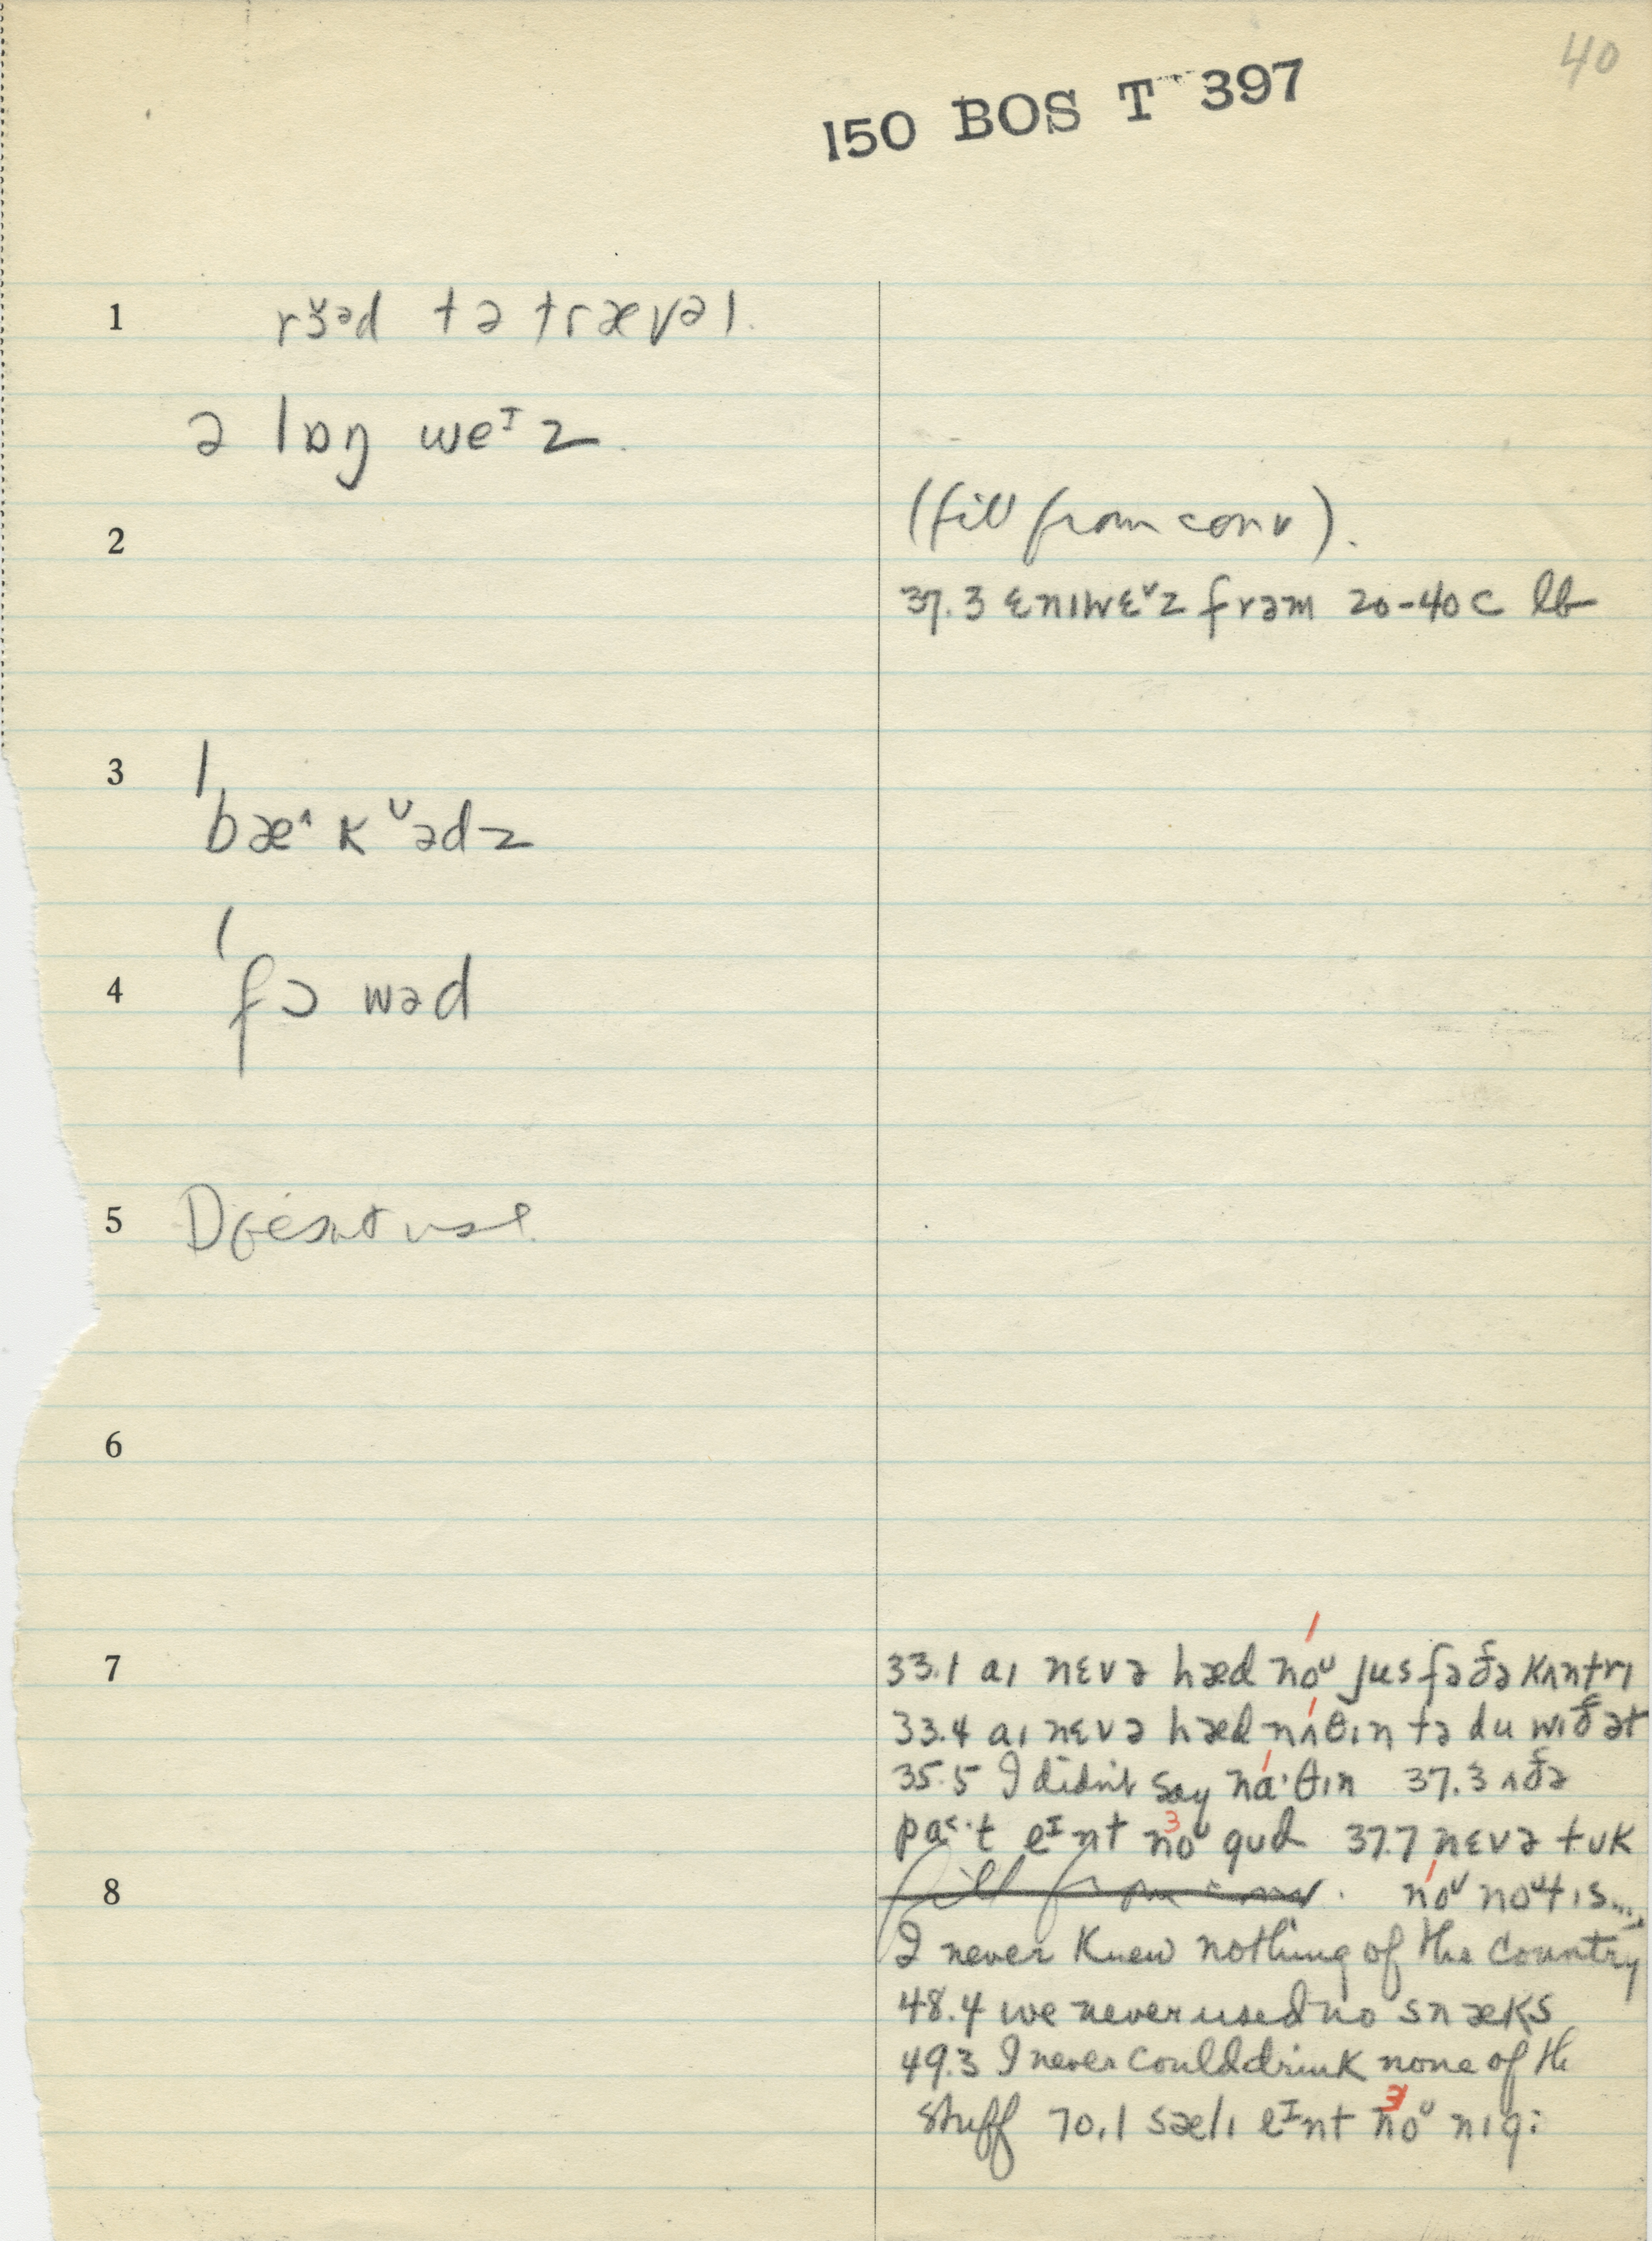 40
150 BOS T 397
1 rɜ˅ᵊd tə trævəl.
ə lɒŋ weᶦz.
2 (fill from conv).
37.3 ɛnɪwɛ˅z frəm 20-40c lb
3 ˈbæ^kᶸədz
4 ˈfɔwəd
5 Doesn't use.
6
7 33.1 aɪ nɛvə hæd noᶸ jus fə ðə kʌntrɪ
33.4 aɪ nɛvə hæd nʌθɪn tə du wɪð ət
35.5 I didn't say na·θɪn 37.3 ʌðə
pa˂·t eᶦnt noᶸ gud 37.7 nɛvə tʊk
8 fill from conv. noᶸ noᶸtɪs....
I never knew nothing of the country
48.4 we never used no snæks
49.3 I never could drink none of th
stuff 70.1 sælɪ eᶦnt noᶸ nɪg